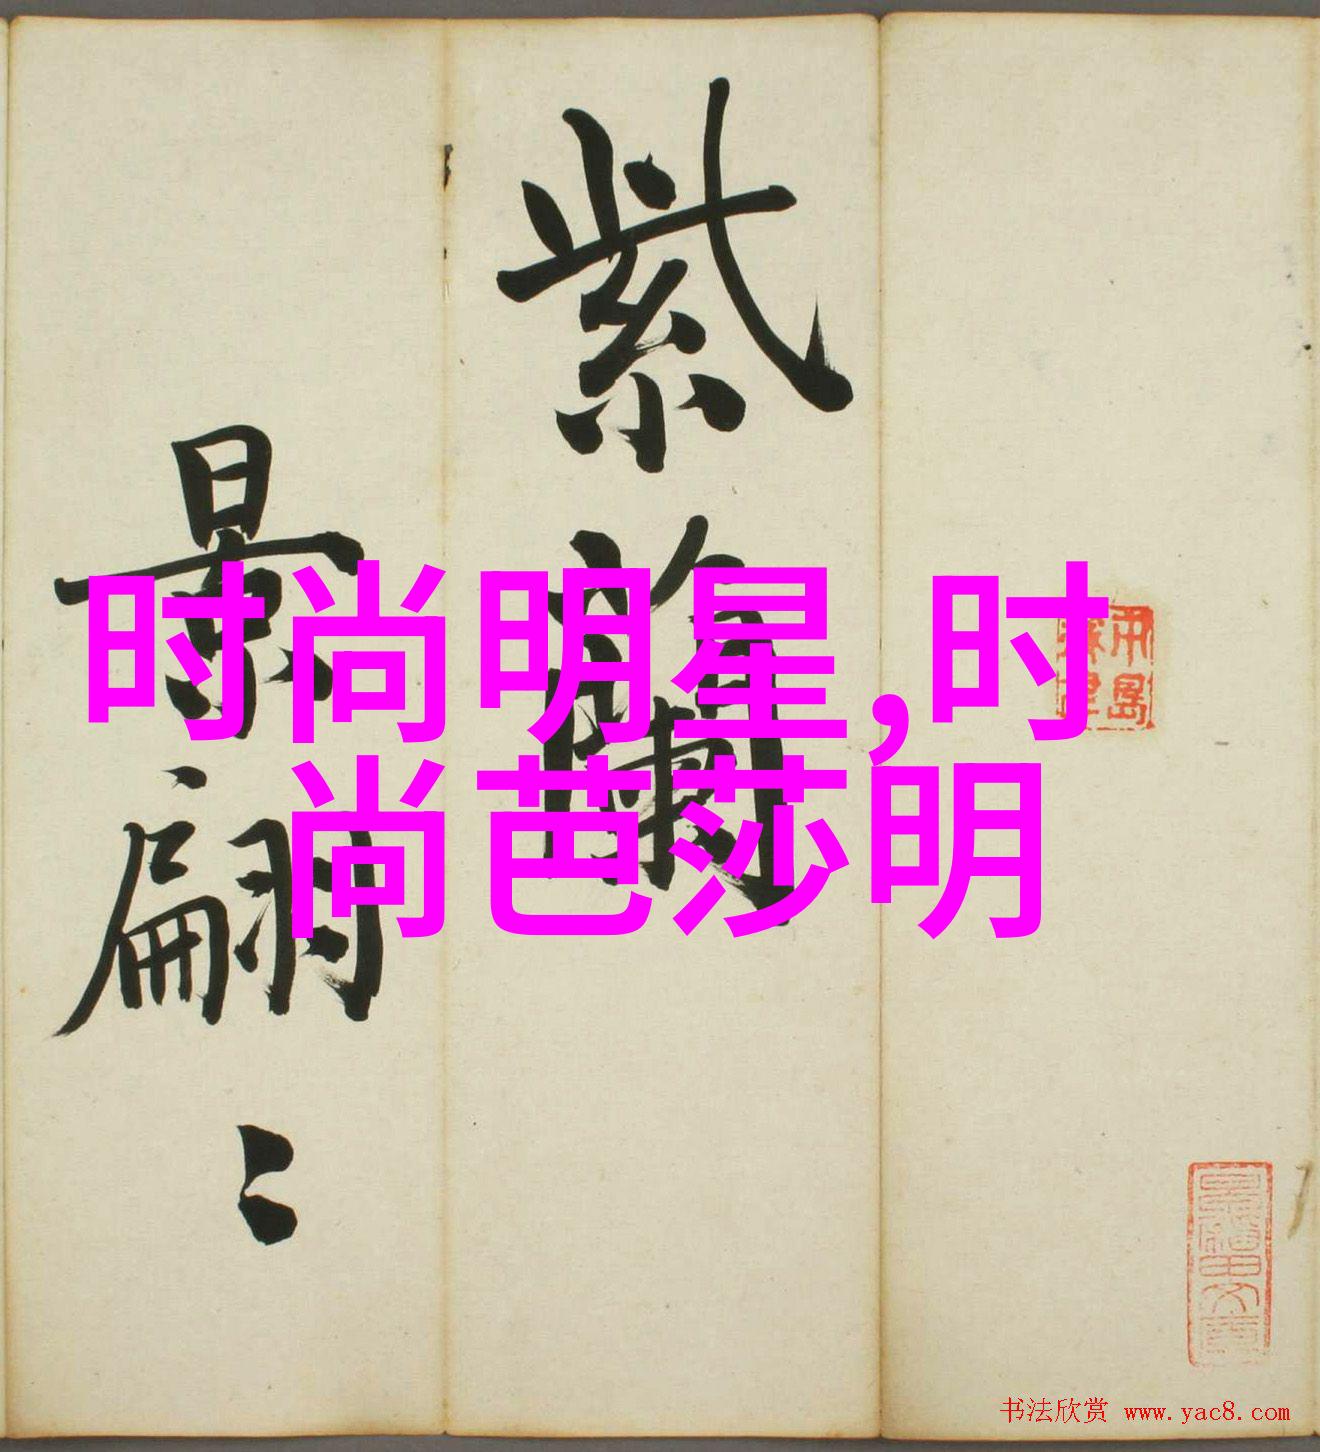 紫蘭
景翩〻
时尚明星,时
尚芭莎明
书法欣赏 www.yac8.com